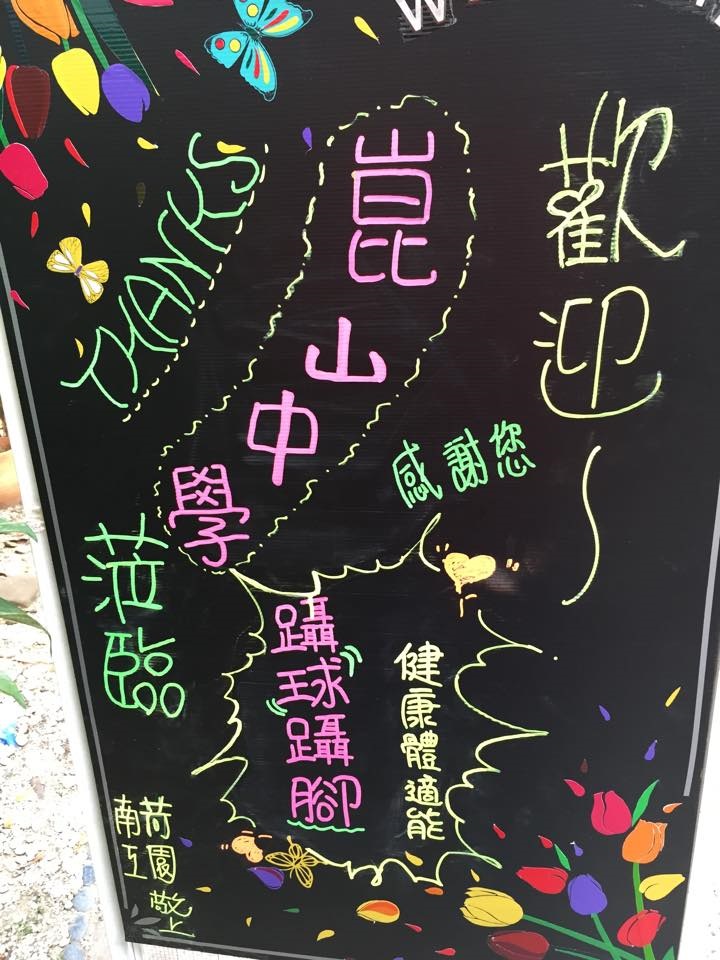 歡迎~
崑山中學
THANKS
感謝您
蒞臨
健康體適能
躡球躡腳
荷園敬上